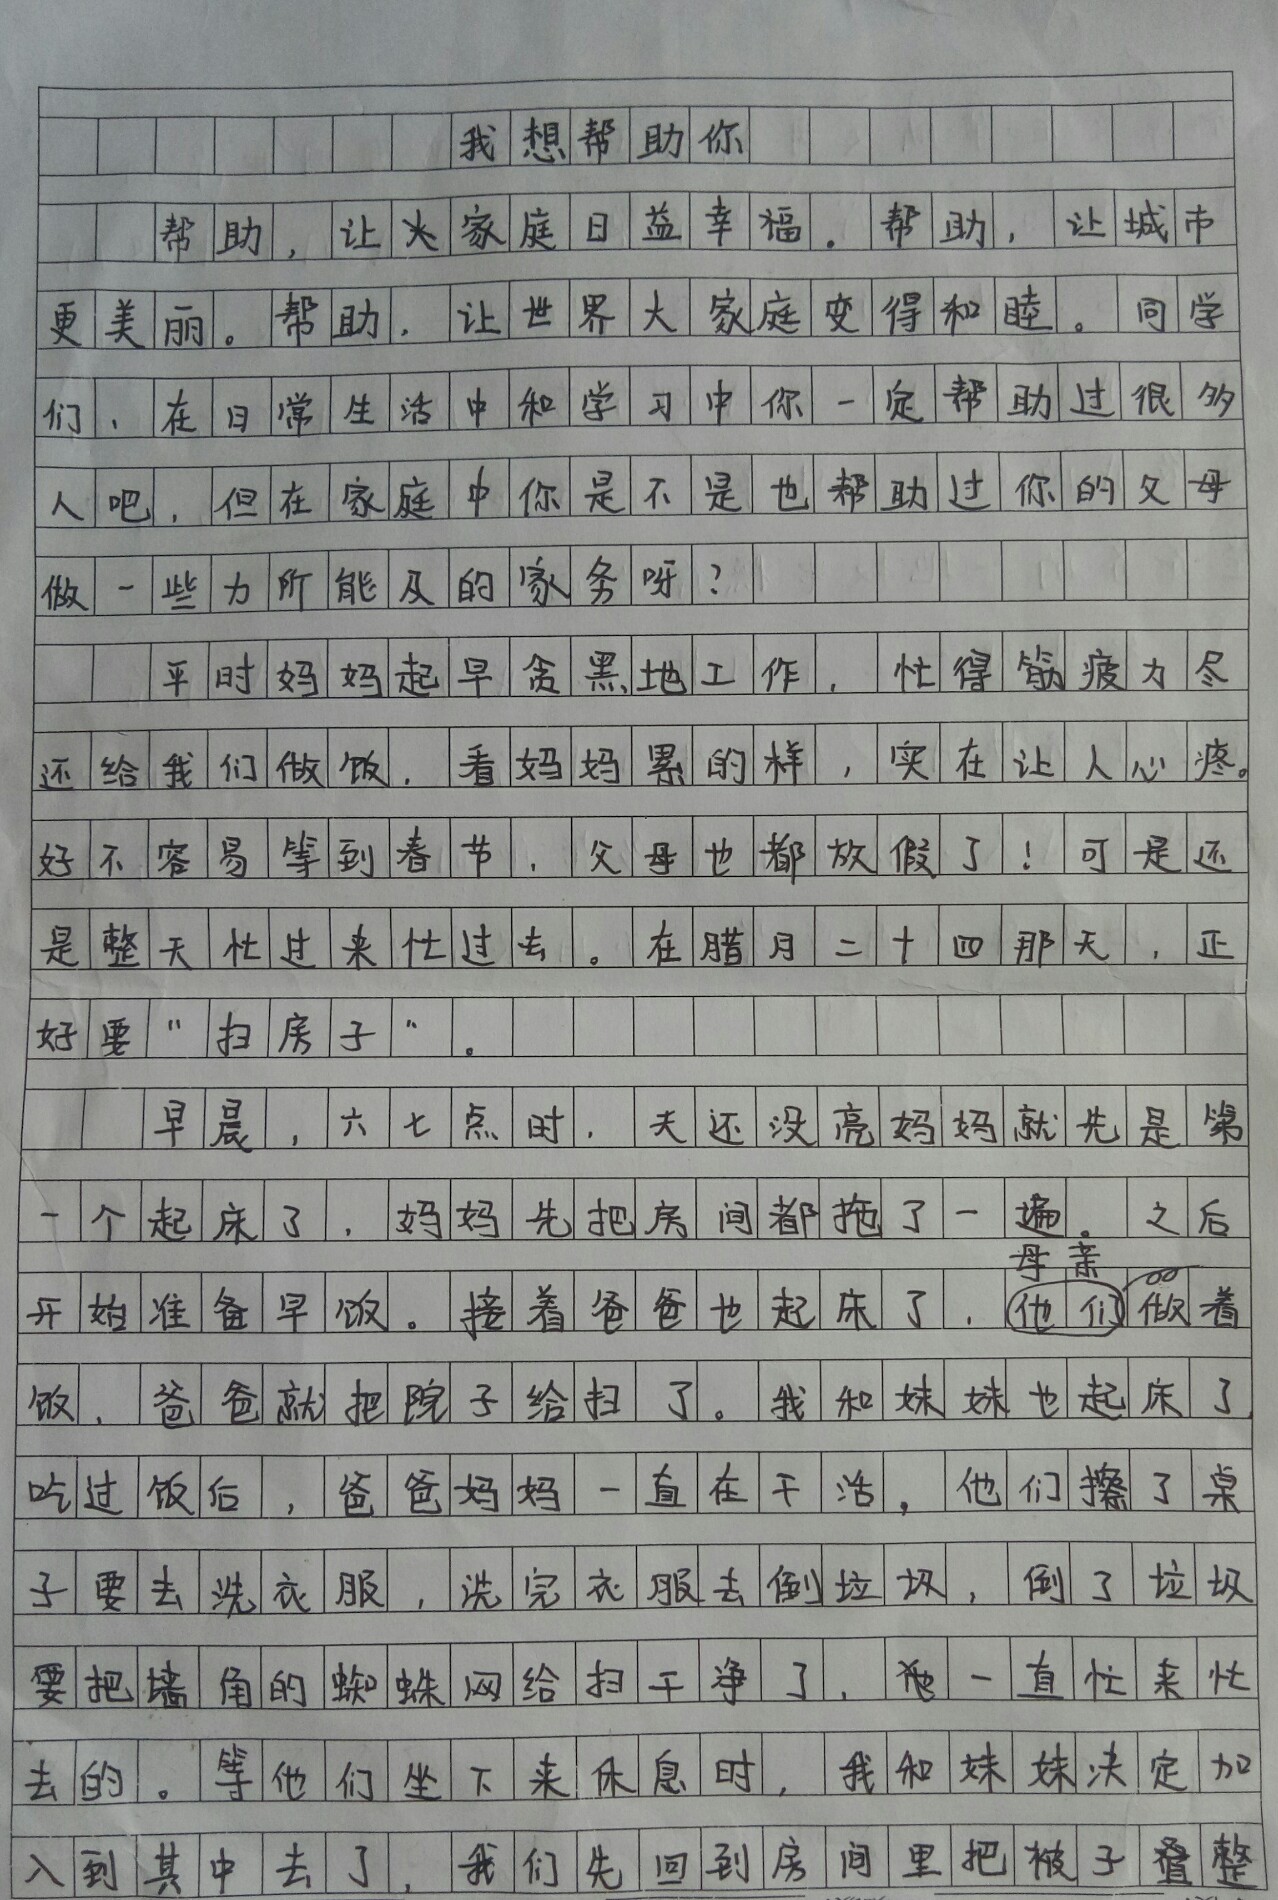 我想帮助你
帮助，让大家庭日益幸福。帮助，让城市
更美丽。帮助，让世界大家庭变得和睦。同学
们，在日常生活中和学习中你一定帮助过很多
人吧，但在家庭中你是不是也帮助过你的父母
做一些力所能及的家务呀？
平时妈妈起早贪黑地工作，忙得筋疲力尽
还给我们做饭，看妈妈累的样，实在让人心疼。
好不容易等到春节，父母也都放假了！可是还
是整天忙过来忙过去。在腊月二十四那天，正
好要“扫房子”。
早晨，六七点时，天还没亮妈妈就先是第
一个起床了，妈妈先把房间都拖了一遍。之后
母亲
开始准备早饭。接着爸爸也起床了，他们做着
饭，爸爸就把院子给扫了。我和妹妹也起床了
吃过饭后，爸爸妈妈一直在干活，他们擦了桌
子要去洗衣服，洗完衣服去倒垃圾，倒了垃圾
要把墙角的蜘蛛网给扫干净了，他一直忙来忙
去的。等他们坐下来休息时，我和妹妹决定加
入到其中去了，我们先回到房间里把被子叠整